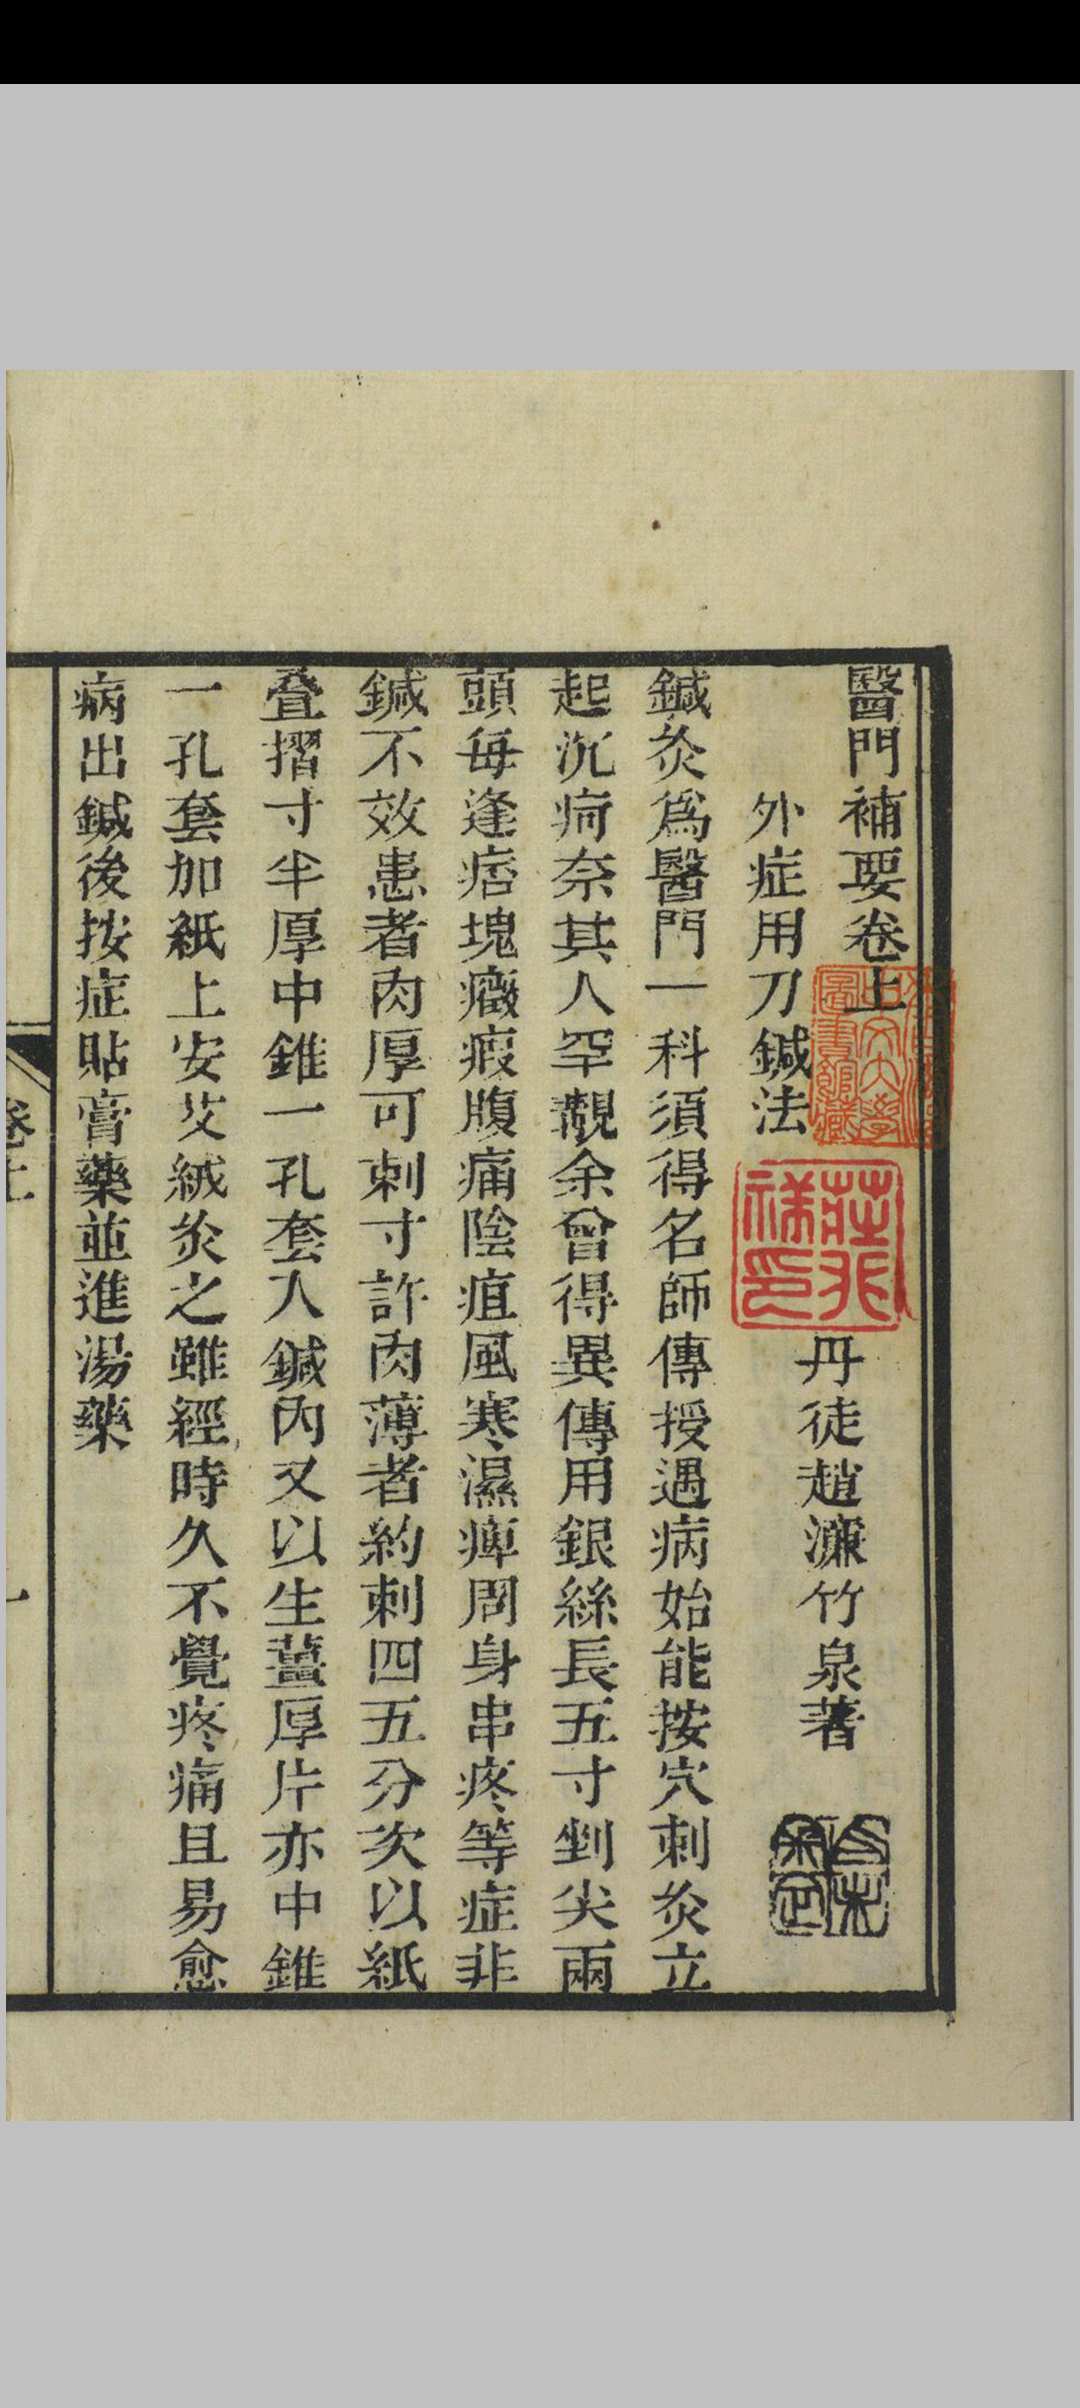 醫門補要卷上
丹徒趙濂竹泉著
外症用刀鍼法
鍼灸爲醫門一科須得名師傳授遇病始能按穴刺灸立
起沉疴奈其人罕覯余曾得異傳用銀絲長五寸剉尖兩
頭每逢痞塊癥瘕腹痛陰疽風寒濕痺周身串疼等症非
鍼不效患者肉厚可刺寸許肉薄者約刺四五分次以紙
疊摺寸半厚中錐一孔套入鍼內又以生薑厚片亦中錐
一孔套加紙上安艾絨灸之雖經時久不覺疼痛且易愈
病出鍼後按症貼膏藥並進湯藥
卷上
一